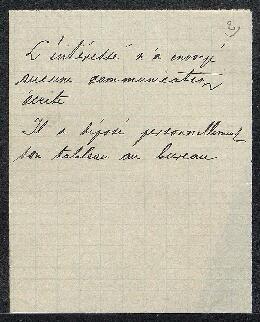 2)
L'intéressé n'a envoyé
aucune communication
écrite
Il a déposé personnellement
son tableau au bureau